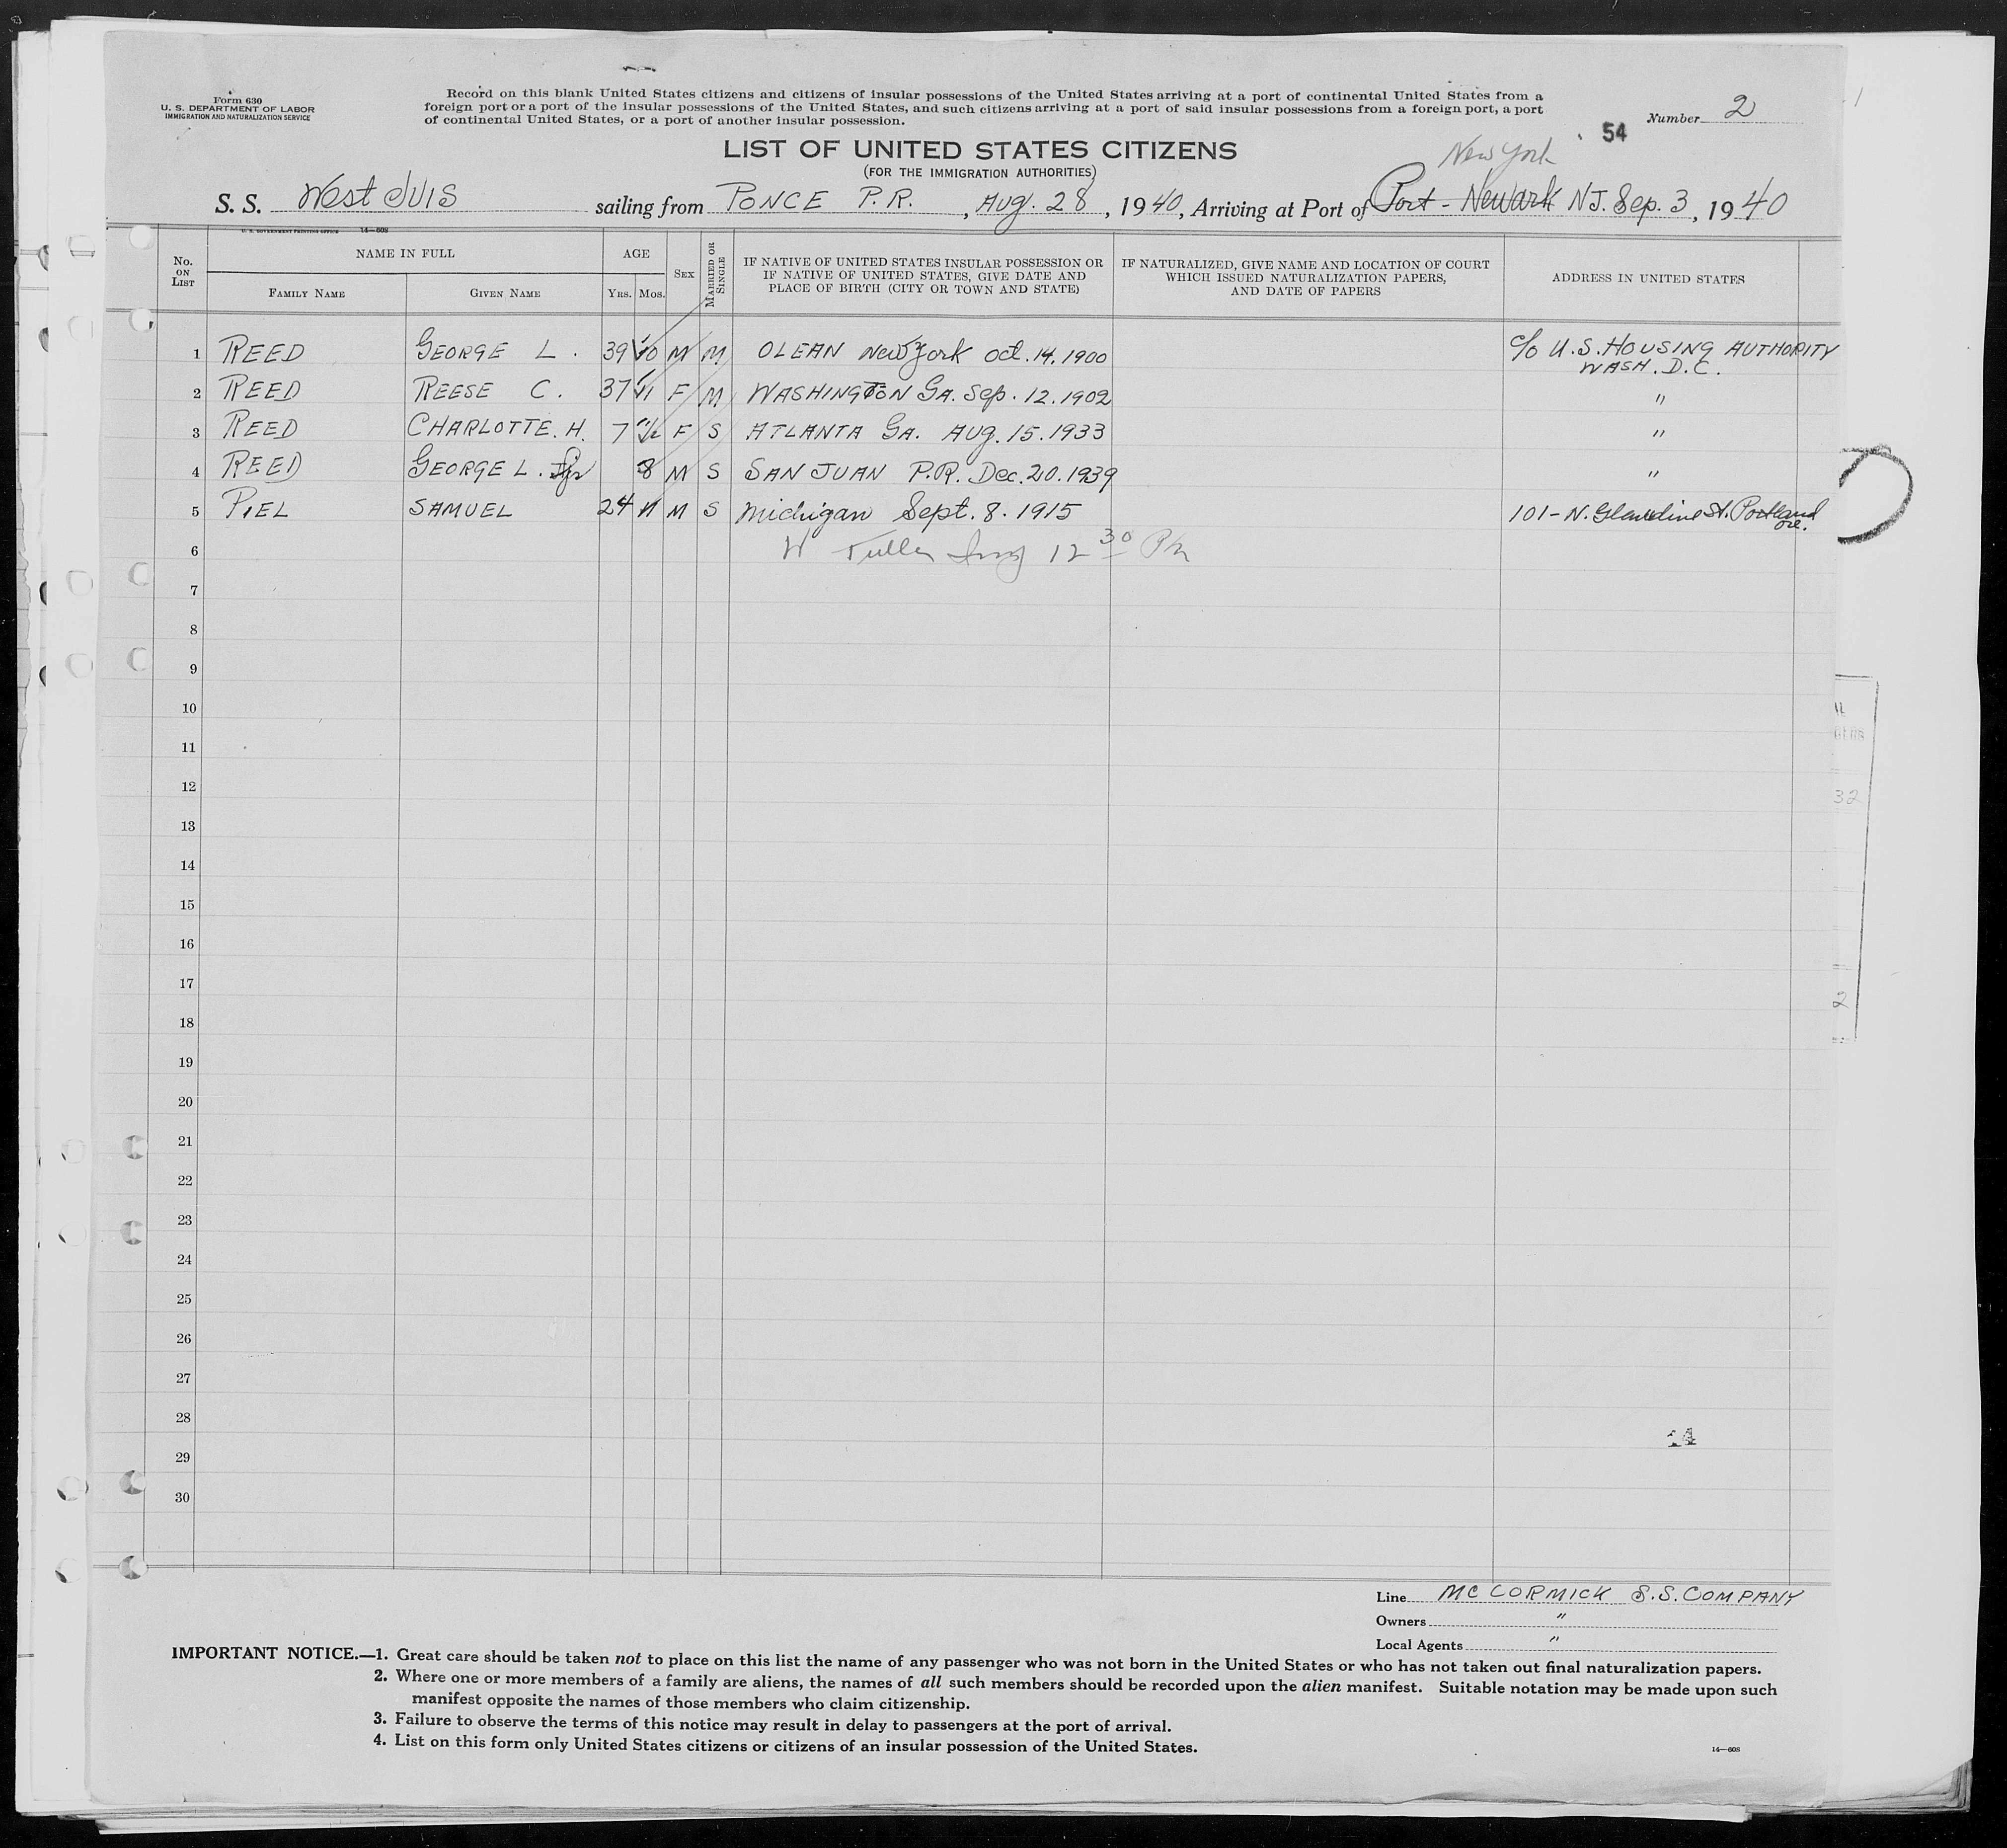 Form 630
U. S. DEPARTMENT OF LABOR
IMMIGRATION AND NATURALIZATION SERVICE
Record on this blank United States citizens and citizens of insular possessions of the United States arriving at a port of continental United States from a
foreign port or a port of the insular possessions of the United States, and such citizens arriving at a port of said insular possessions from a foreign port, a port
of continental United States, or a port of another insular possession.
Number 2
54
LIST OF UNITED STATES CITIZENS
(FOR THE IMMIGRATION AUTHORITIES)
New York
S. S. West Ivis sailing from PONCE P.R., Aug. 28, 1940, Arriving at Port of Port - Newark NJ. Sep. 3, 1940
U. S. GOVERNMENT PRINTING OFFICE 14—608
No. ON LIST
NAME IN FULL
FAMILY NAME GIVEN NAME
AGE
YRS. MOS.
SEX
MARRIED OR SINGLE
IF NATIVE OF UNITED STATES INSULAR POSSESSION OR
IF NATIVE OF UNITED STATES, GIVE DATE AND
PLACE OF BIRTH (CITY OR TOWN AND STATE)
IF NATURALIZED, GIVE NAME AND LOCATION OF COURT
WHICH ISSUED NATURALIZATION PAPERS,
AND DATE OF PAPERS
ADDRESS IN UNITED STATES
1 REED GEORGE L. 39 10 M M OLEAN New York Oct. 14. 1900 c/o U.S. HOUSING AUTHORITY
WASH. D.C.
2 REED REESE C. 37 11 F M WASHINGTON GA. Sep. 12. 1902 "
3 REED CHARLOTTE. H. 7 F S ATLANTA GA. AUG. 15. 1933 "
4 REED GEORGE L. Jr 8 M S SAN JUAN P.R. Dec. 20. 1939 "
5 PIEL SAMUEL 24 11 M S Michigan Sept. 8. 1915 101 - N. St. Portland
Ore.
6 W Fuller 12 30 Pm
7
8
9
10
11
12
13
14
15
16
17
18
19
20
21
22
23
24
25
26
27
28
29
30
14
32
2
Line MC CORMICK S.S. COMPANY
Owners "
Local Agents "
IMPORTANT NOTICE.—1. Great care should be taken not to place on this list the name of any passenger who was not born in the United States or who has not taken out final naturalization papers.
2. Where one or more members of a family are aliens, the names of all such members should be recorded upon the alien manifest. Suitable notation may be made upon such
manifest opposite the names of those members who claim citizenship.
3. Failure to observe the terms of this notice may result in delay to passengers at the port of arrival.
4. List on this form only United States citizens or citizens of an insular possession of the United States.
14—608